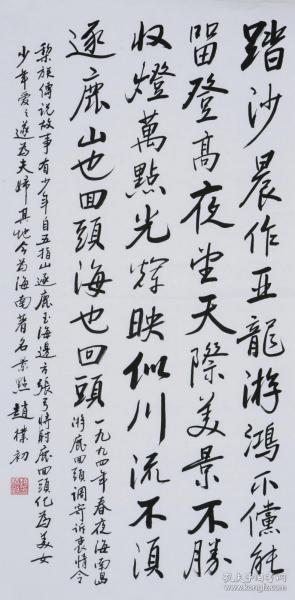 踏沙晨作亞龍游鴻爪儻能
留登高夜望天際美景不勝
收燈萬點光輝映似川流不須
逐鹿山也回頭海也回頭
一九九四年春夜海南島
游鹿回頭調寄訴衷情令
黎族傳說故事有少年自五指山逐鹿至海邊方張弓將射鹿回頭化為美女
少年愛之遂為夫婦其地今為海南著名景點 趙樸初